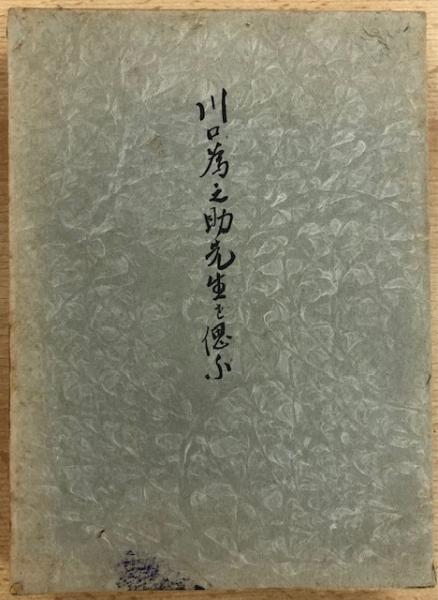 川口為之助先生を偲ふ